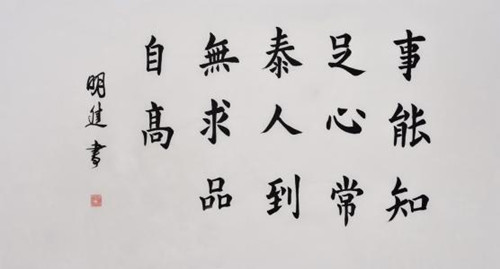 事能知
足心常
泰人到
無求品
自高
明進書